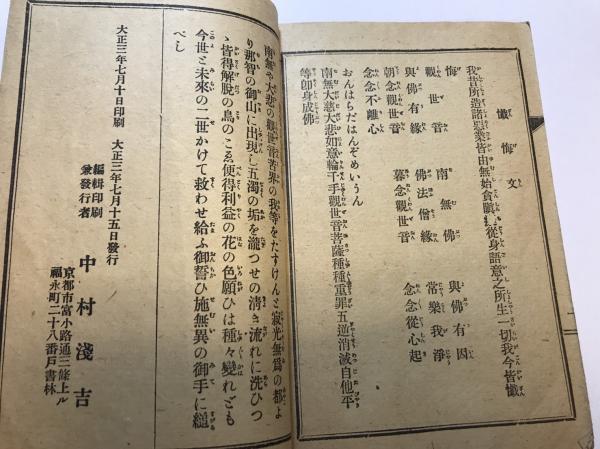 懺悔文
我昔所造諸惡業皆由無始貪瞋癡從身語意之所生一切我今皆懺
悔
觀世音　南無佛　與佛有因
與佛有緣　佛法僧緣　常樂我淨
朝念觀世音　暮念觀世音　念念從心起
念念不離心
おんはらだはんぞめいうん
南無大慈大悲如意輪千手觀世音菩薩種種重罪五逆消滅自他平
等卽身成佛
南無や大悲の觀世音苦界の我等をたすけんと寂光無爲の都よ
り那智の御山に出現し五濁の垢を瀧つせの淸き流れに洗ひつ
ゝ皆得解脫の鳥のこゑ便得利益の花の色願ひは種々變れども
今世と未來の二世かけて救わせ給ふ御誓ひ施無異の御手に縋る
べし
大正三年七月十日印刷　大正三年七月十五日發行
編輯印刷
兼發行者　中村淺吉
京都市富小路通三條上ル
福永町二十八番戶書林